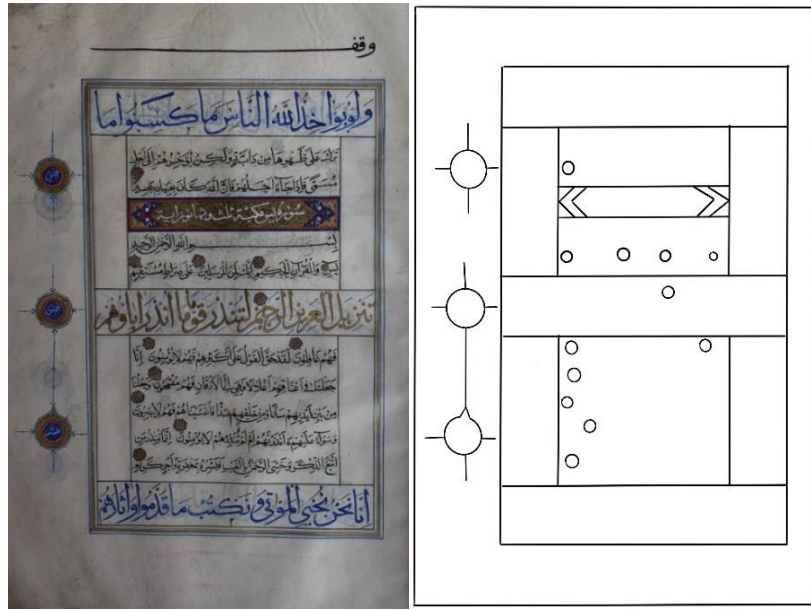 وقف
ولو يؤاخذ الله الناس بما كسبوا ما
ترك على ظهرها من دابة ولكن يؤخرهم إلى أجل
مسمى فإذا جاء أجلهم فإن الله كان بعباده بصيرا
سورة يس مكية ثلث وثمانون اية
بسم الله الرحمن الرحيم
يس والقرآن الحكيم إنك لمن المرسلين على صراط مستقيم
تنزيل العزيز الرحيم لتنذر قوما ما أنذر آباؤهم
فهم غافلون لقد حق القول على أكثرهم فهم لا يؤمنون إنا
جعلنا في أعناقهم أغلالا فهي إلى الأذقان فهم مقمحون وجعلنا
من بين أيديهم سدا ومن خلفهم سدا فأغشيناهم فهم لا يبصرون
وسواء عليهم أأنذرتهم أم لم تنذرهم لا يؤمنون إنما تنذر من
اتبع الذكر وخشي الرحمن بالغيب فبشره بمغفرة وأجر كريم
إنا نحن نحيي الموتى ونكتب ما قدموا وآثارهم